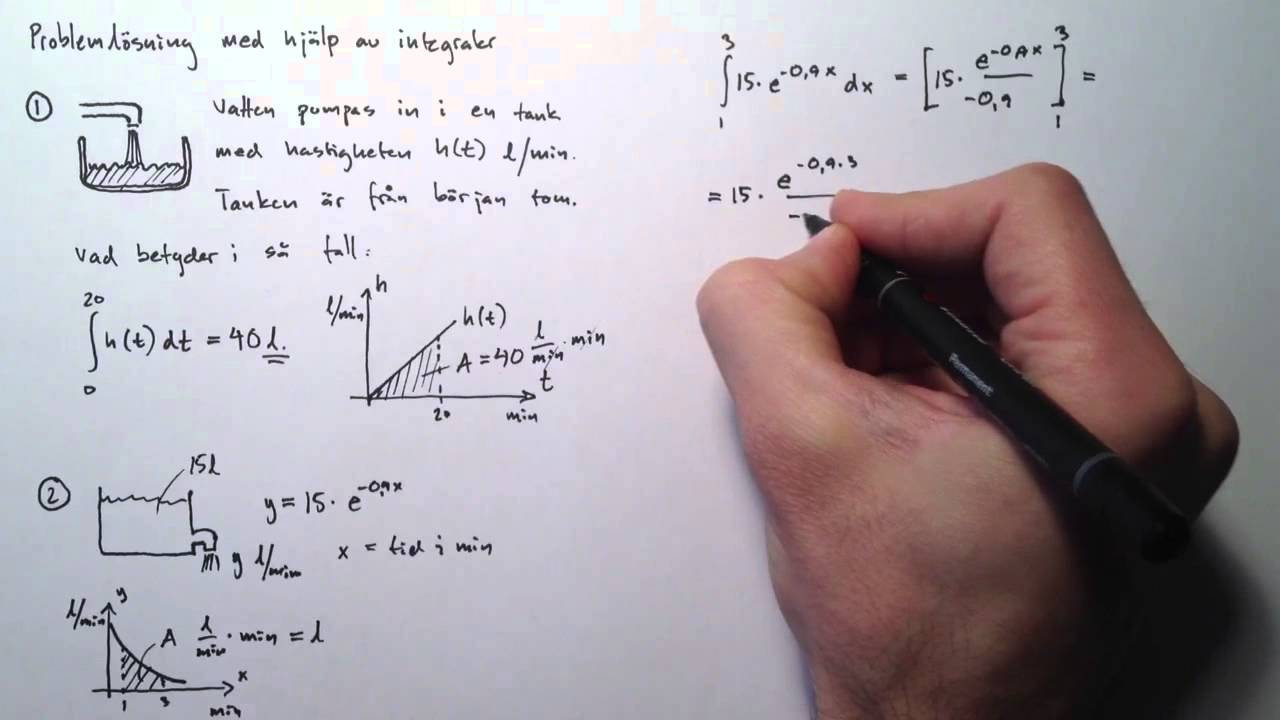 Problemlösning med hjälp av integraler
① Vatten pumpas in i en tank
med hastigheten h(t) l/min.
Tanken är från början tom.
Vad betyder i så fall:
∫₀²⁰ h(t) dt = 40 l.
l/min h
h(t)
A = 40 l/min · min
t
20 min
② 15 l
y = 15 · e^(-0,9x)
y l/min x = tid i min
l/min y
A l/min · min = l
x
1 3
min
∫₁³ 15 · e^(-0,9x) dx = [15 · e^(-0,9x)/-0,9]₁³ =
= 15 · e^(-0,9·3)/-
Permanent